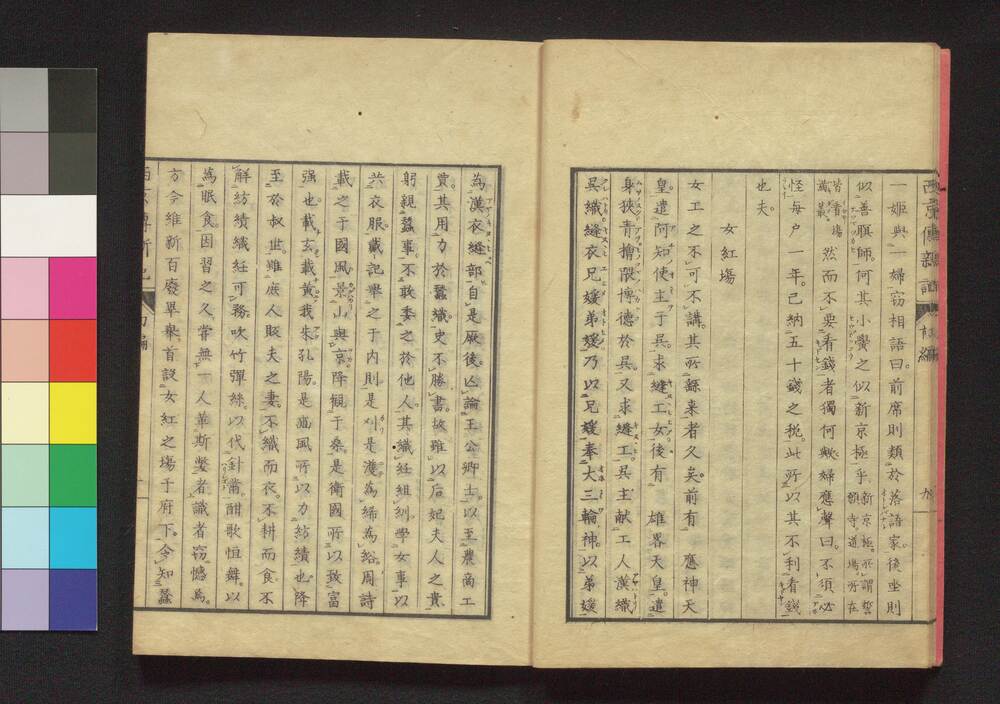 一姬與一婦窃相語曰。前席則類於落語家。後坐則
似善眼師。何其小鬢之似新京極乎。新京極。所謂誓願寺道場。所在
皆看場。然而不要看錢者獨何歟。婦應聲曰。不須必
怪。每戶一年。已納五十錢之稅。此所以其不利看錢
也夫。
女紅場
女工之不可不講。其所繇来者久矣。前有應神天
皇。遣阿知使主于吳。求縫工女。後有雄畧天皇。遣
身狹青檜隈博德於吳。又求縫工。吳主献工人漢織
吳織縫衣兄媛弟媛。乃以兄媛奉大三輪神。以弟媛
為漢衣縫部。自是厥後。亡論王公卿士。以至農商工
賈。其用力於蠶織。史不勝書。故雖以后妃夫人之貴。
躬親蠶事。不敢委之於他人。其織紝組紃。學女事。以
共衣服。戴記舉之于内則。是刈是濩。為絺為綌。周詩
載之于國風。景山與京。降観于桑。是衛國所以致富
强也。載玄載黃。我朱孔陽。是豳風所以力紡績也。降
至於叔世。雖庶人販夫之妻。不織而衣。不耕而食。不
解紡績織紝。可務吹竹彈絲。以代針黹。酣歌恒舞。以
為眠食。因習之久。甞無一人革斯獘者。識者窃憾焉。
方今維新百廢畢舉。首設女紅之場于府下。令知蠶